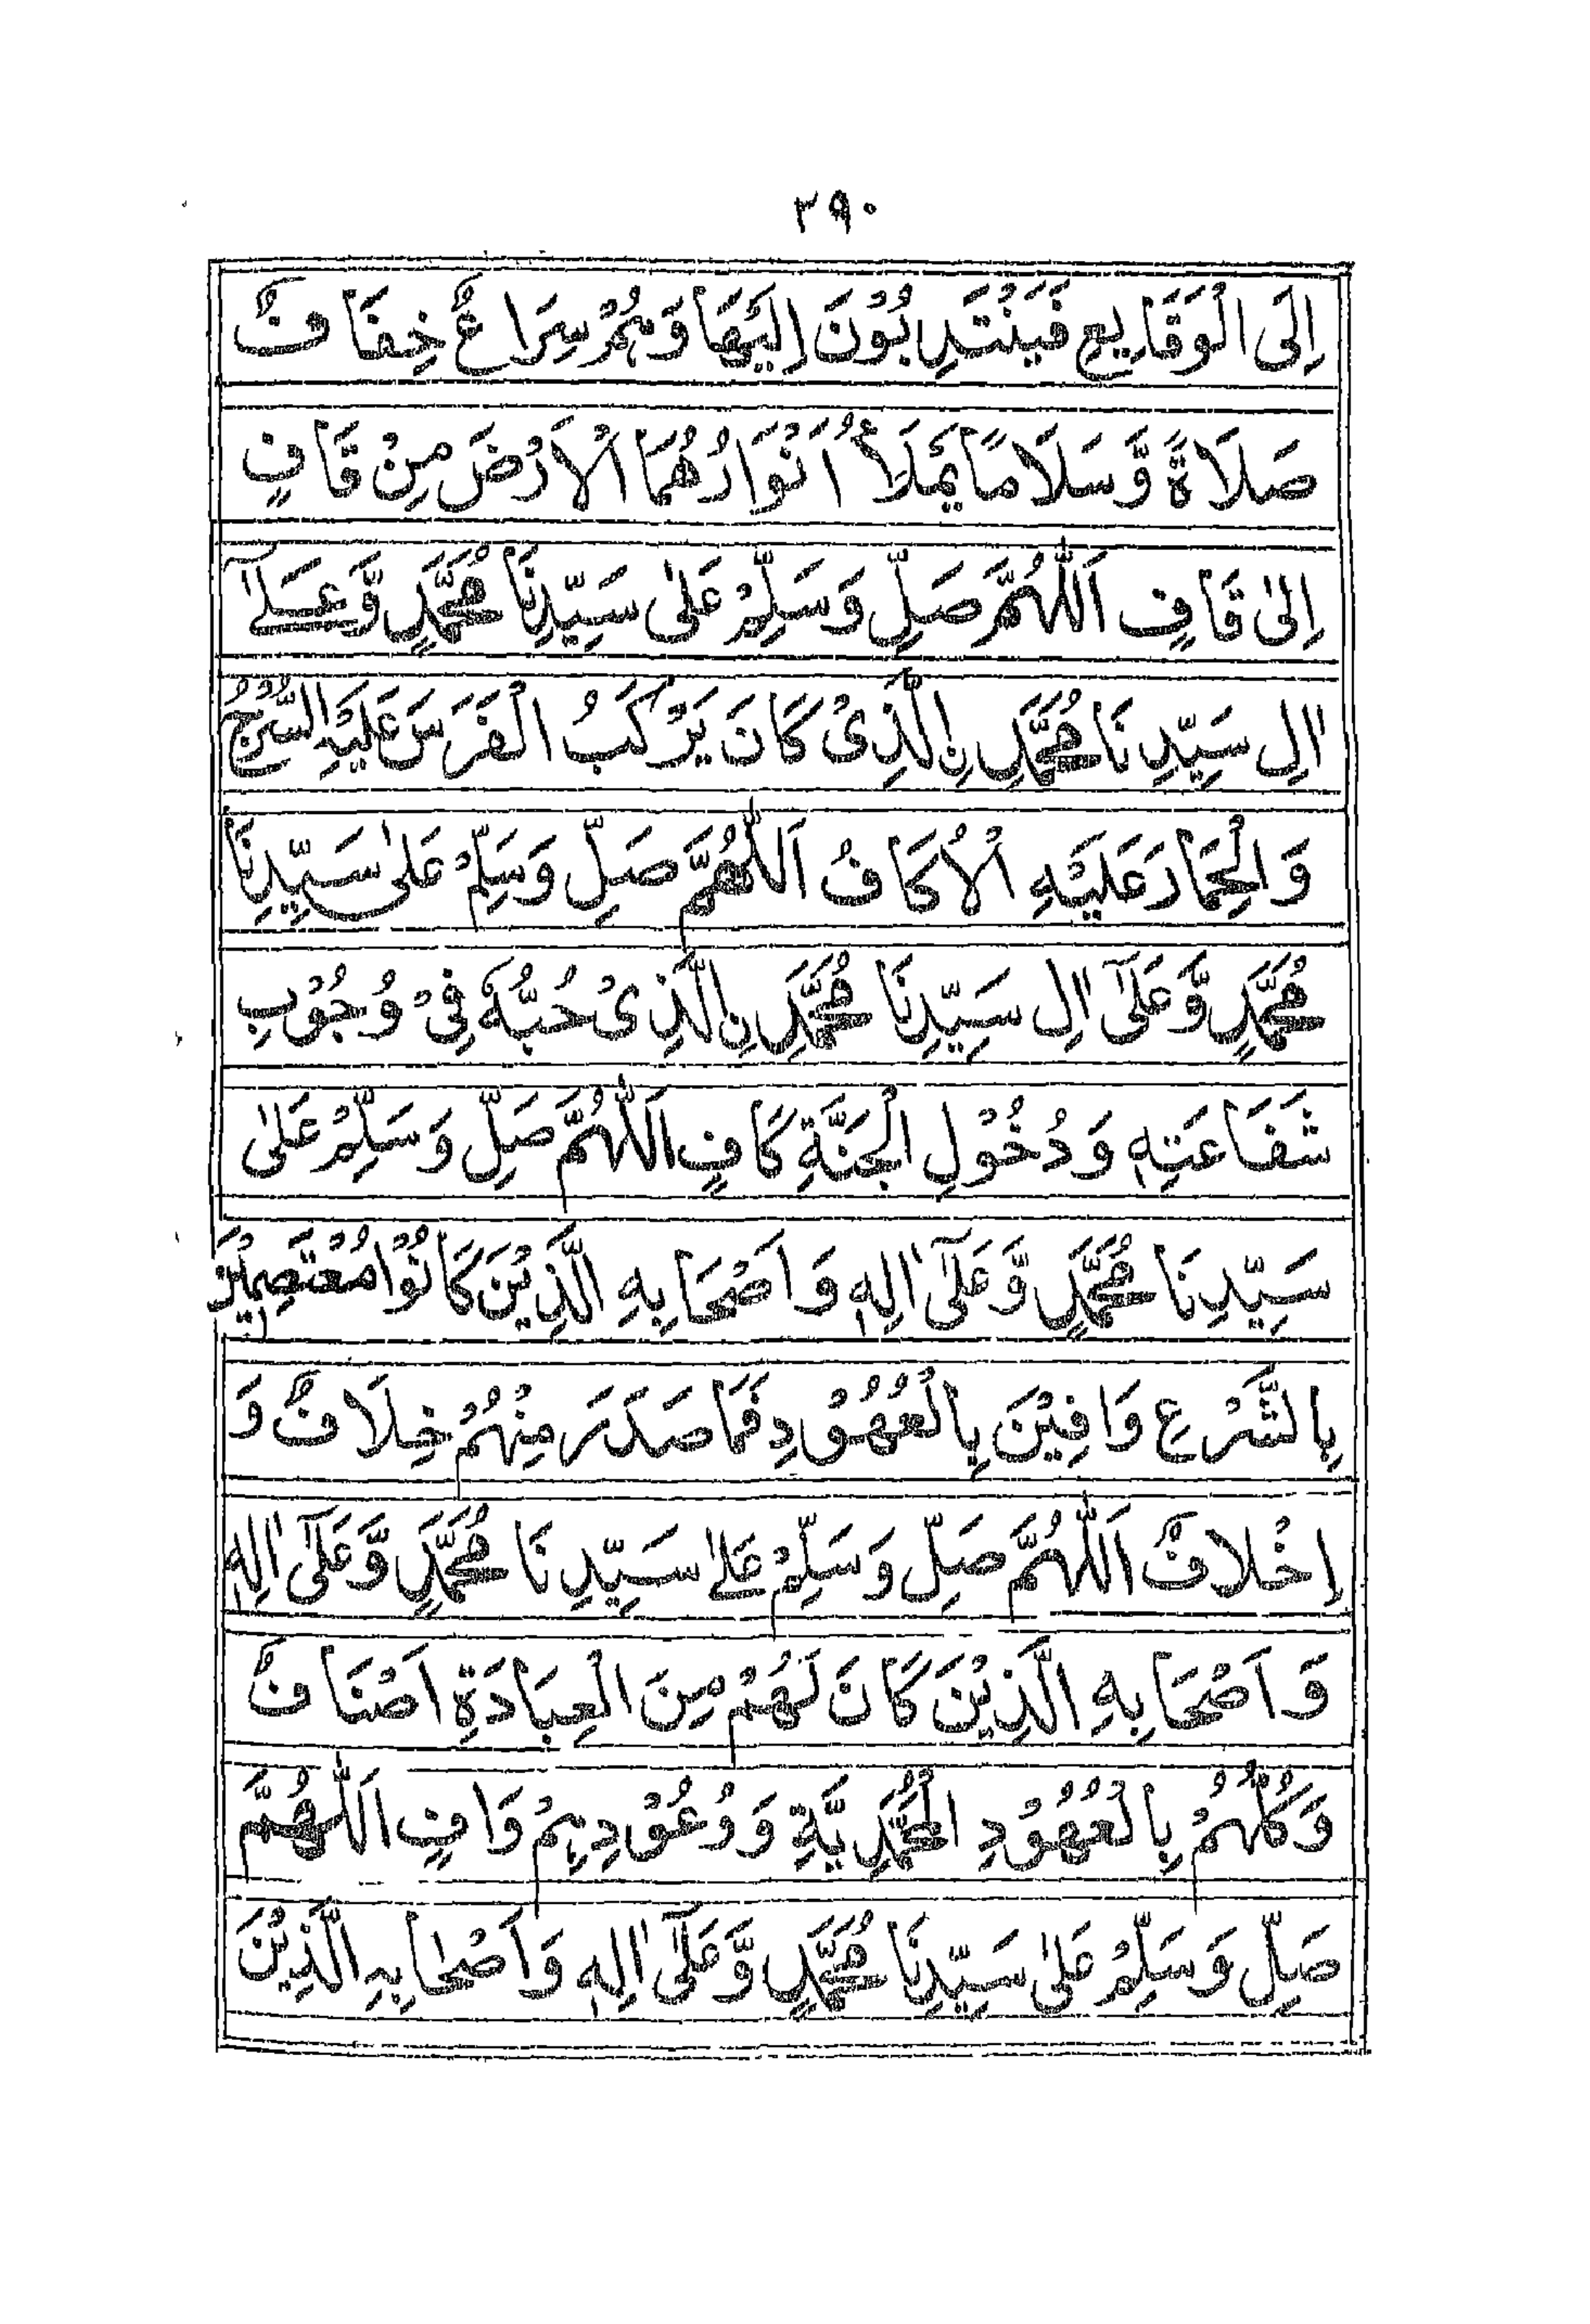 ٢٩٠
اِلَى الْوَقَايِعِ فَيَنْتَدِبُوْنَ اِلَيْهَا وَهُمْ سِرَاعٌ خِفَافٌ
صَلَاةً وَّسَلَامًا يَمْلَاُ اَنْوَارُهُمَا الْاَرْضَ مِنْ قَافٍ
اِلٰى قَافٍ اَللّٰهُمَّ صَلِّ وَسَلِّمْ عَلٰى سَيِّدِنَا مُحَمَّدٍ وَّعَلٰٓى
اٰلِ سَيِّدِنَا مُحَمَّدِ نِ الَّذِىْ كَانَ يَرْكَبُ الْفَرَسَ عَلَيْهِ السُّرُجُ
وَالْحِمَارَ عَلَيْهِ الْاُكَافُ اَللّٰهُمَّ صَلِّ وَسَلِّمْ عَلٰى سَيِّدِنَا
مُحَمَّدٍ وَّعَلٰٓى اٰلِ سَيِّدِنَا مُحَمَّدِ نِ الَّذِىْ حُبُّهٗ فِىْ وُجُوْبِ
شَفَاعَتِهٖ وَدُخُوْلِ الْجَنَّةِ كَافٍ اَللّٰهُمَّ صَلِّ وَسَلِّمْ عَلٰى
سَيِّدِنَا مُحَمَّدٍ وَّعَلٰٓى اٰلِهٖ وَاَصْحَابِهِ الَّذِيْنَ كَانُوْا مُعْتَصِمِيْنَ
بِالشَّرْعِ وَافِيْنَ بِالْعُهُوْدِ فَمَا صَدَرَ مِنْهُمْ خِلَافٌ وَ
اِخْلَافٌ اَللّٰهُمَّ صَلِّ وَسَلِّمْ عَلٰى سَيِّدِنَا مُحَمَّدٍ وَّعَلٰٓى اٰلِهٖ
وَاَصْحَابِهِ الَّذِيْنَ كَانَ لَهُمْ مِنَ الْعِبَادَةِ اَصْنَافٌ
وَكُلُّهُمْ بِالْعُهُوْدِ الْمُحَمَّدِيَّةِ وَوُعُوْدِهِمْ وَافٍ اَللّٰهُمَّ
صَلِّ وَسَلِّمْ عَلٰى سَيِّدِنَا مُحَمَّدٍ وَّعَلٰٓى اٰلِهٖ وَاَصْحَابِهِ الَّذِيْنَ